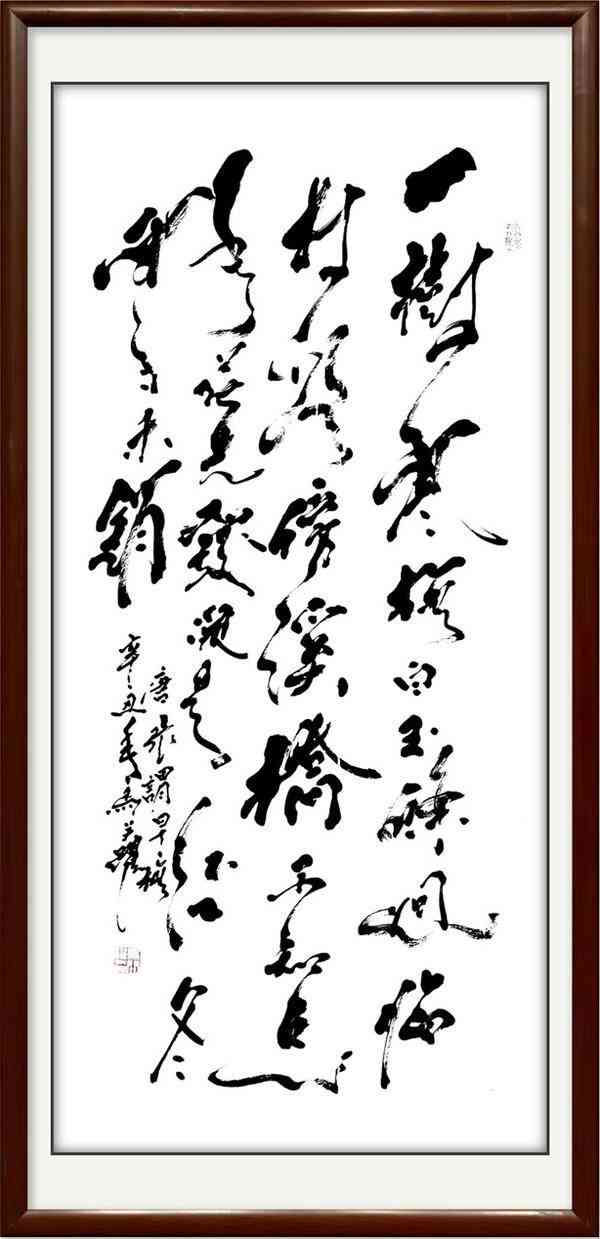 一樹寒楳白玉條迥臨
村路傍溪橋不知近
水花先發疑是經冬
雪未銷
唐張謂早楳
辛丑年馬